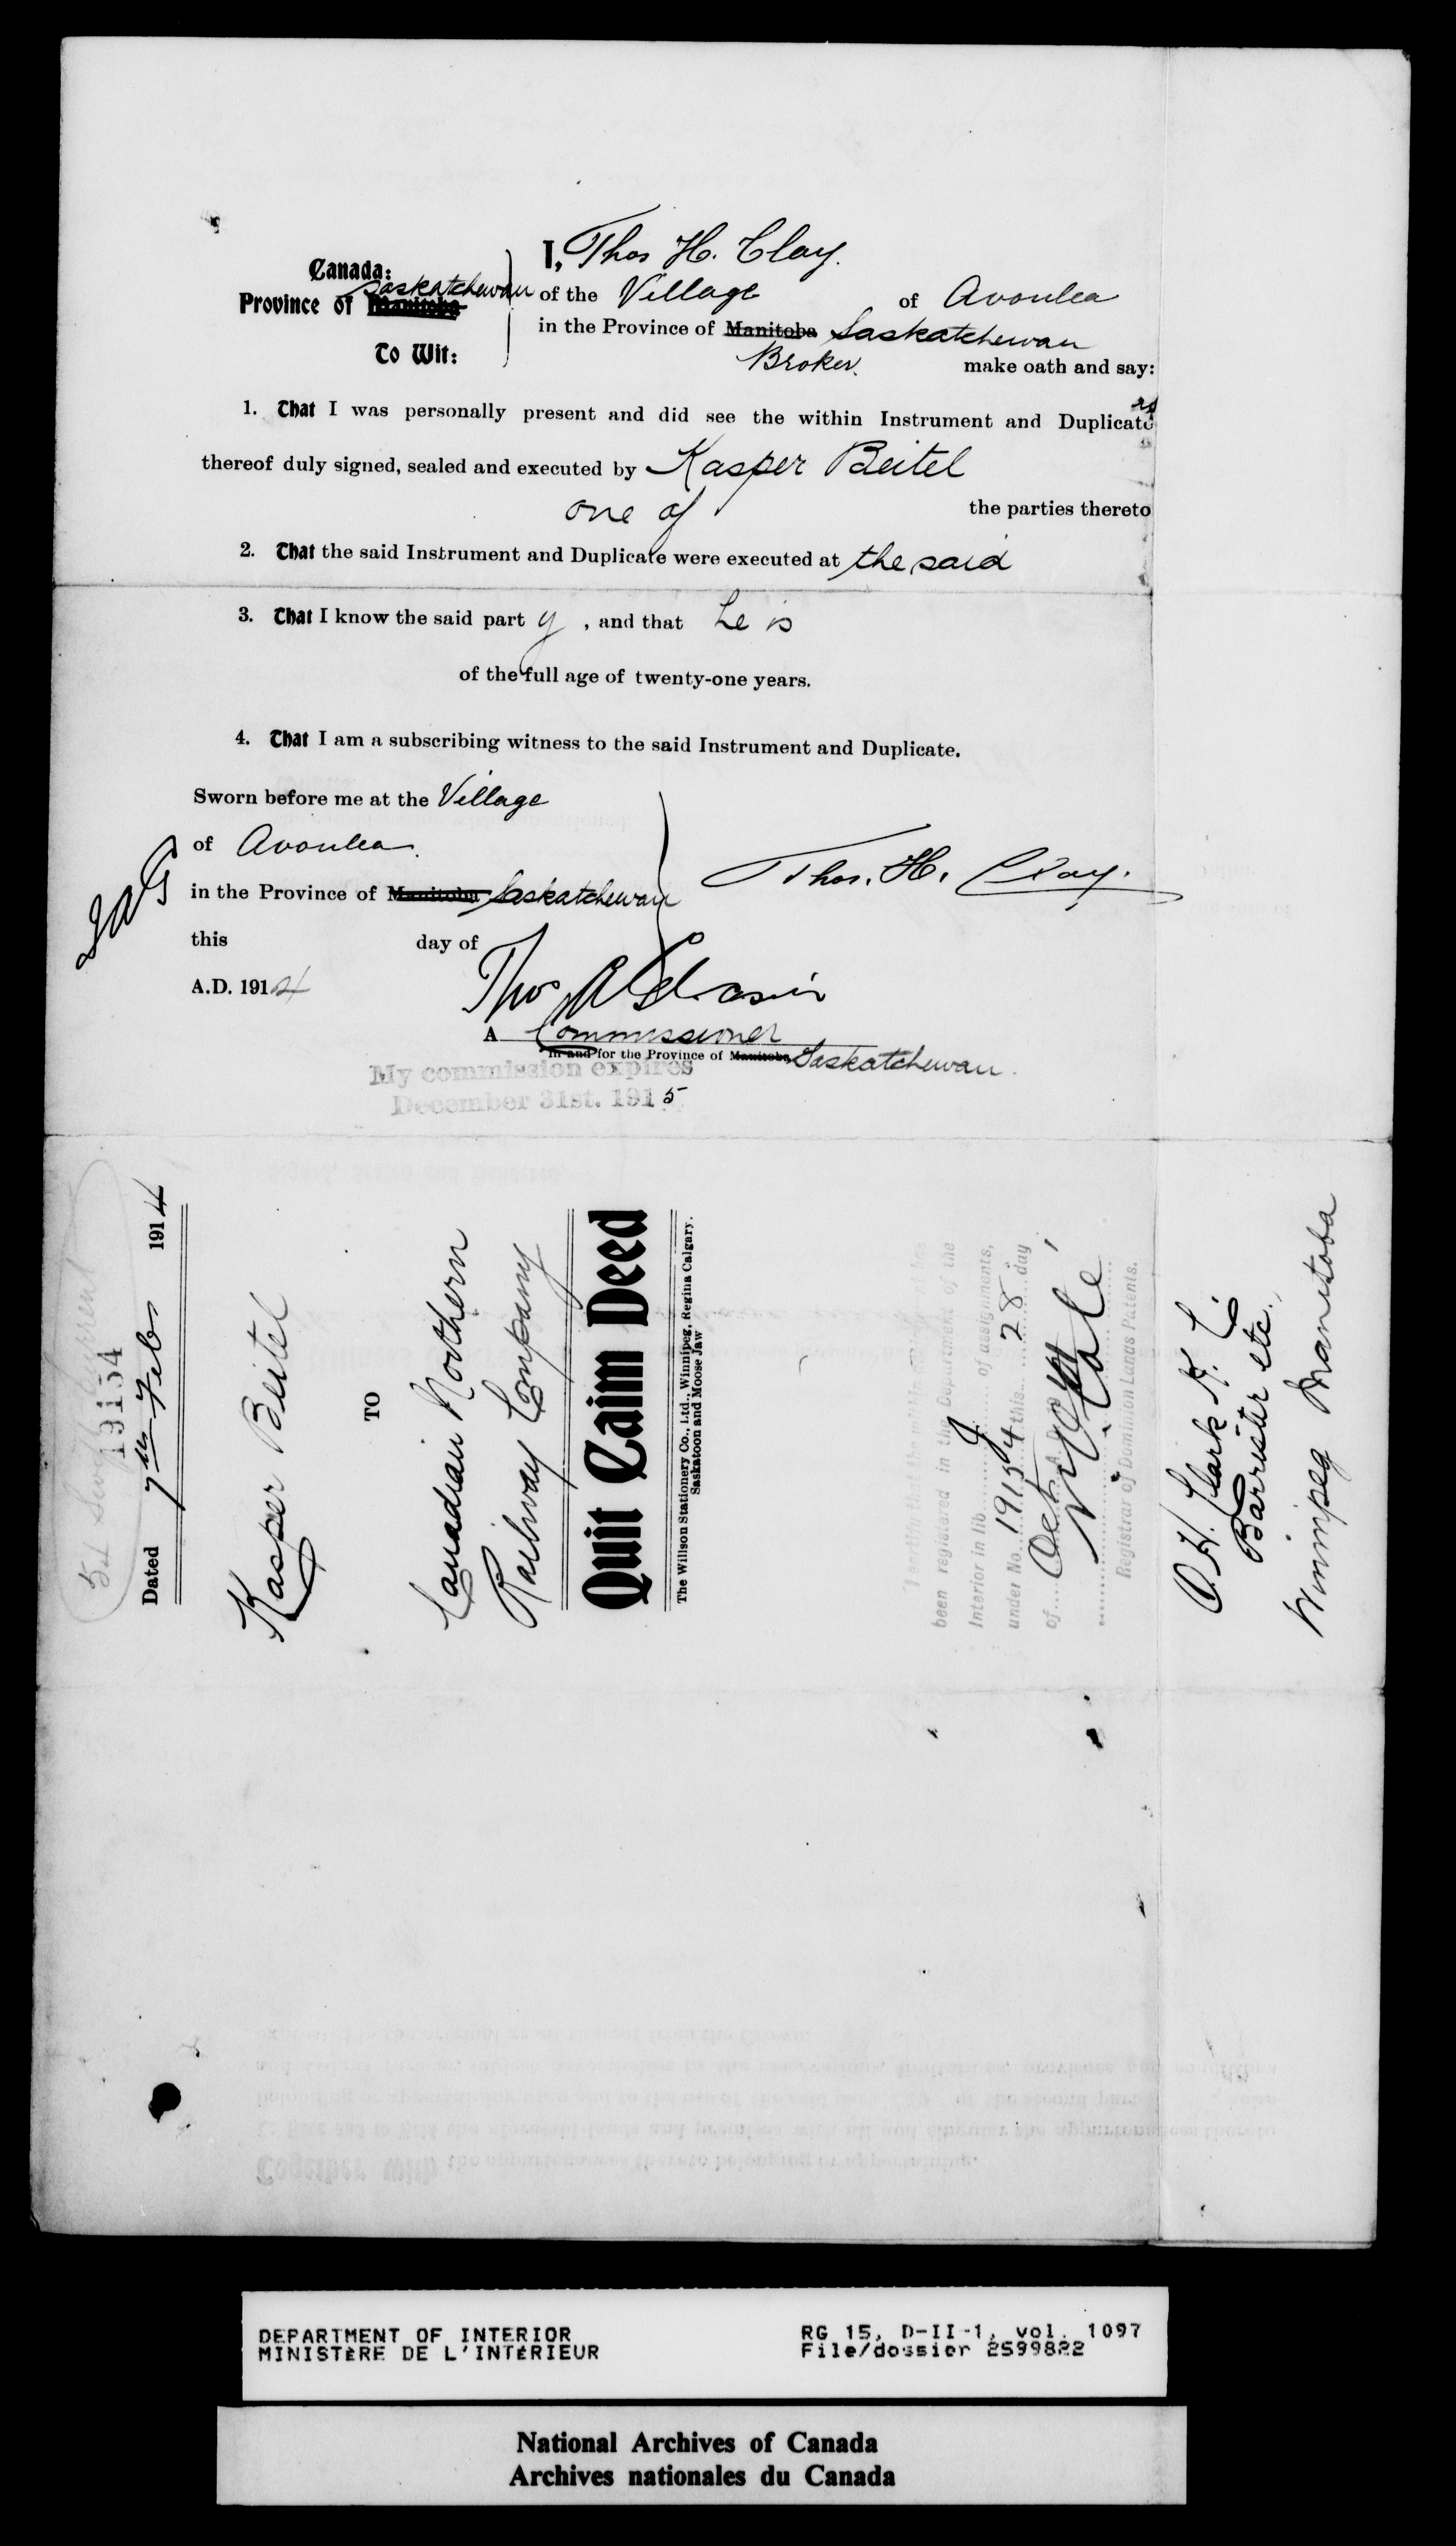 I, Thos H. Clay.
Canada:
Saskatchewan
Province of Manitoba
To Wit:
of the Village of Avonlea
in the Province of Manitoba Saskatchewan
Broker. make oath and say:
1. That I was personally present and did see the within Instrument and Duplicate
thereof duly signed, sealed and executed by Kasper Beitel
one of the parties thereto
2. That the said Instrument and Duplicate were executed at the said
3. That I know the said part y , and that he is
of the full age of twenty-one years.
4. That I am a subscribing witness to the said Instrument and Duplicate.
Sworn before me at the Village
of Avonlea.
in the Province of Manitoba Saskatchewan
Thos. H. Clay.
this day of
A.D. 1914
Thos
A Commissioner
in and for the Province of Manitoba Saskatchewan.
My commission expires
December 31st. 1915
19154
Dated 7th Feb 1914
Kasper Beitel
TO
Canadian Northern
Railway Company
Quit Claim Deed
The Willson Stationery Co., Ltd., Winnipeg, Regina Calgary.
Saskatoon and Moose Jaw
I certify that the within
been registered in the Department of the
Interior in lib of assignments,
under No. 19154 this 28 day
of Oct A.D.
Registrar of Dominion Lands Patents.
O.H. Clark K.C.
Barrister etc.,
Winnipeg Manitoba
Together with the appurtenances thereto belonging or appertaining.
DEPARTMENT OF INTERIOR
MINISTÈRE DE L'INTÉRIEUR
RG 15, D-II-1, vol. 1097
File/dossier 2599822
National Archives of Canada
Archives nationales du Canada